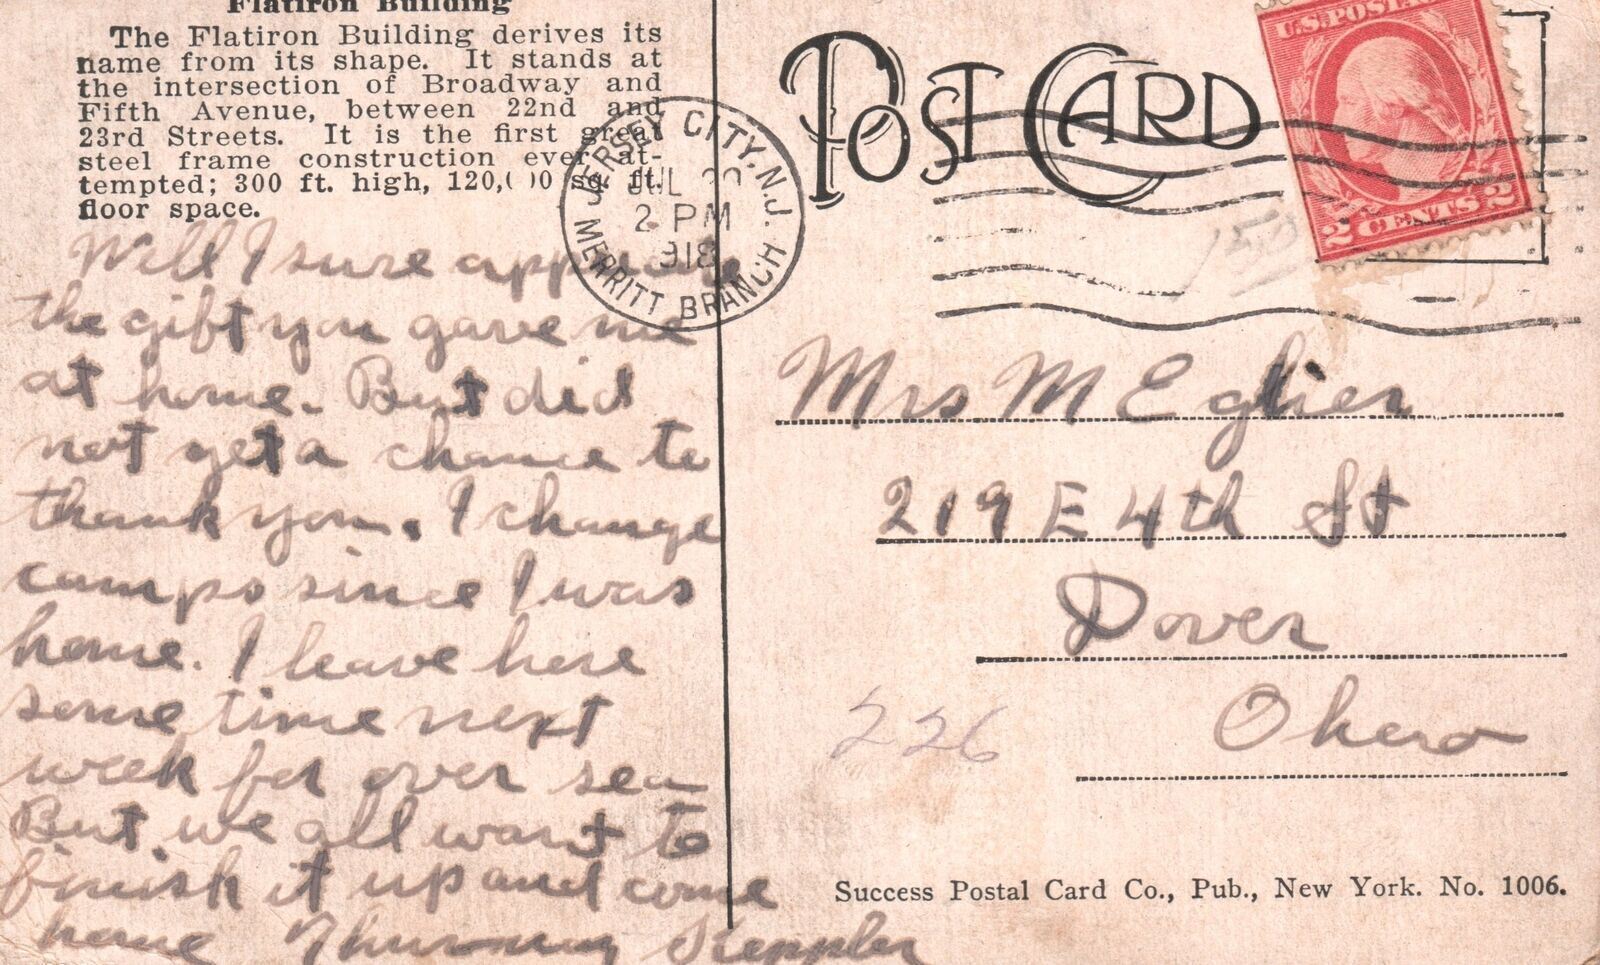 Flatiron Building
The Flatiron Building derives its
name from its shape. It stands at
the intersection of Broadway and
Fifth Avenue, between 22nd and
23rd Streets. It is the first great
steel frame construction ever at-
tempted; 300 ft. high, 120,( )0 sq. ft.
floor space.
Will I sure
the gift you gave me
at home. But did
not get a chance to
thank you. I change
camps since I was
home. I leave here
some time next
week for over sea
But we all want to
finish it up and come
home Keppler
JERSEY CITY, N.J.
JUL
2 PM
918
MERRITT BRANCH
POST CARD
U.S. POSTAGE
2 CENTS 2
150
Mrs M Eglier
219 E 4th St
Dover
Ohero
226
Success Postal Card Co., Pub., New York. No. 1006.